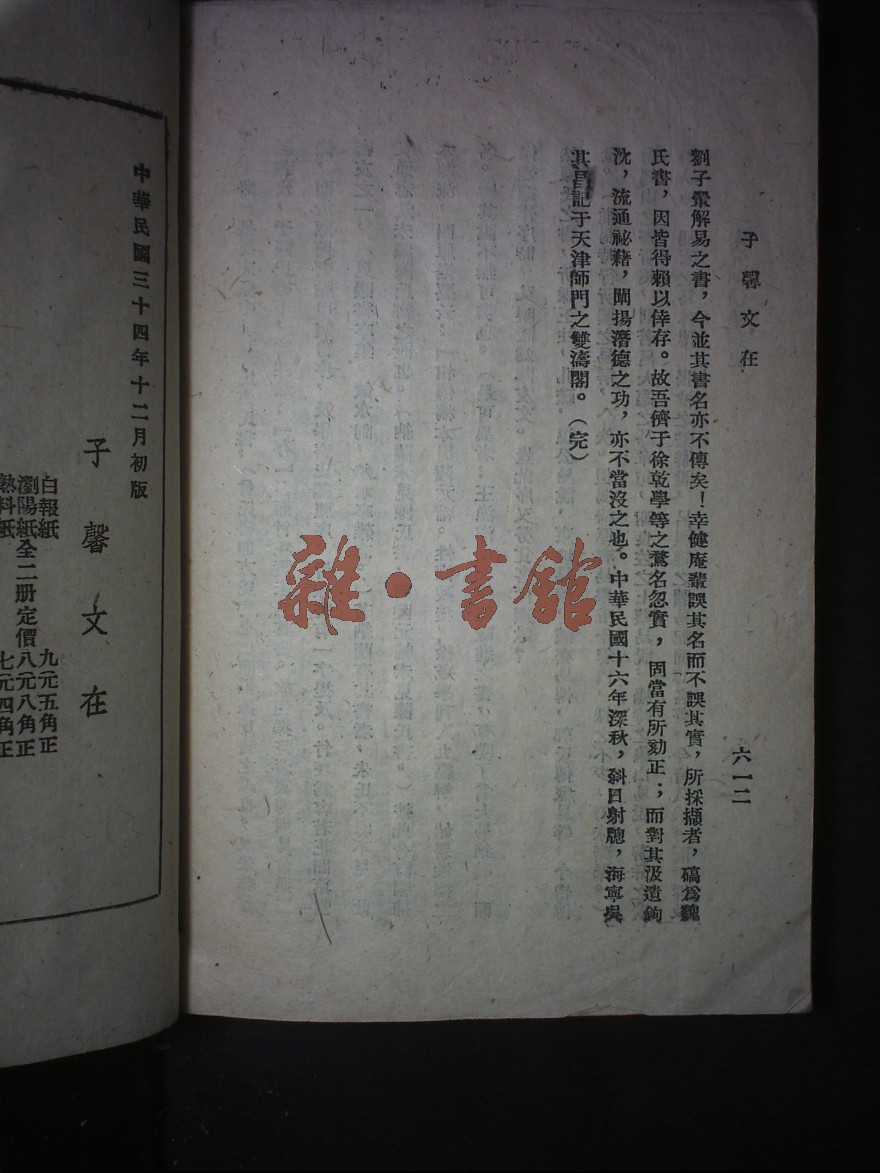 子馨文在
六一二
劉子翬解易之書，今並其書名亦不傳矣！幸健庵輩誤其名而不誤其實，所採擷者，碻爲魏
氏書，因皆得賴以倖存。故吾儕于徐乾學等之騖名忽實，固當有所劾正；而對其汲遺鉤
沈，流通祕藉，闡揚潛德之功，亦不當沒之也。中華民國十六年深秋，斜日射牕，海寧吳
其昌記于天津師門之雙濤閣。（完）
中華民國三十四年十二月初版
子馨文在
白報紙 九元五角正
瀏陽紙全二册定價八元八角正
熟料紙 七元四角正
雜·書館